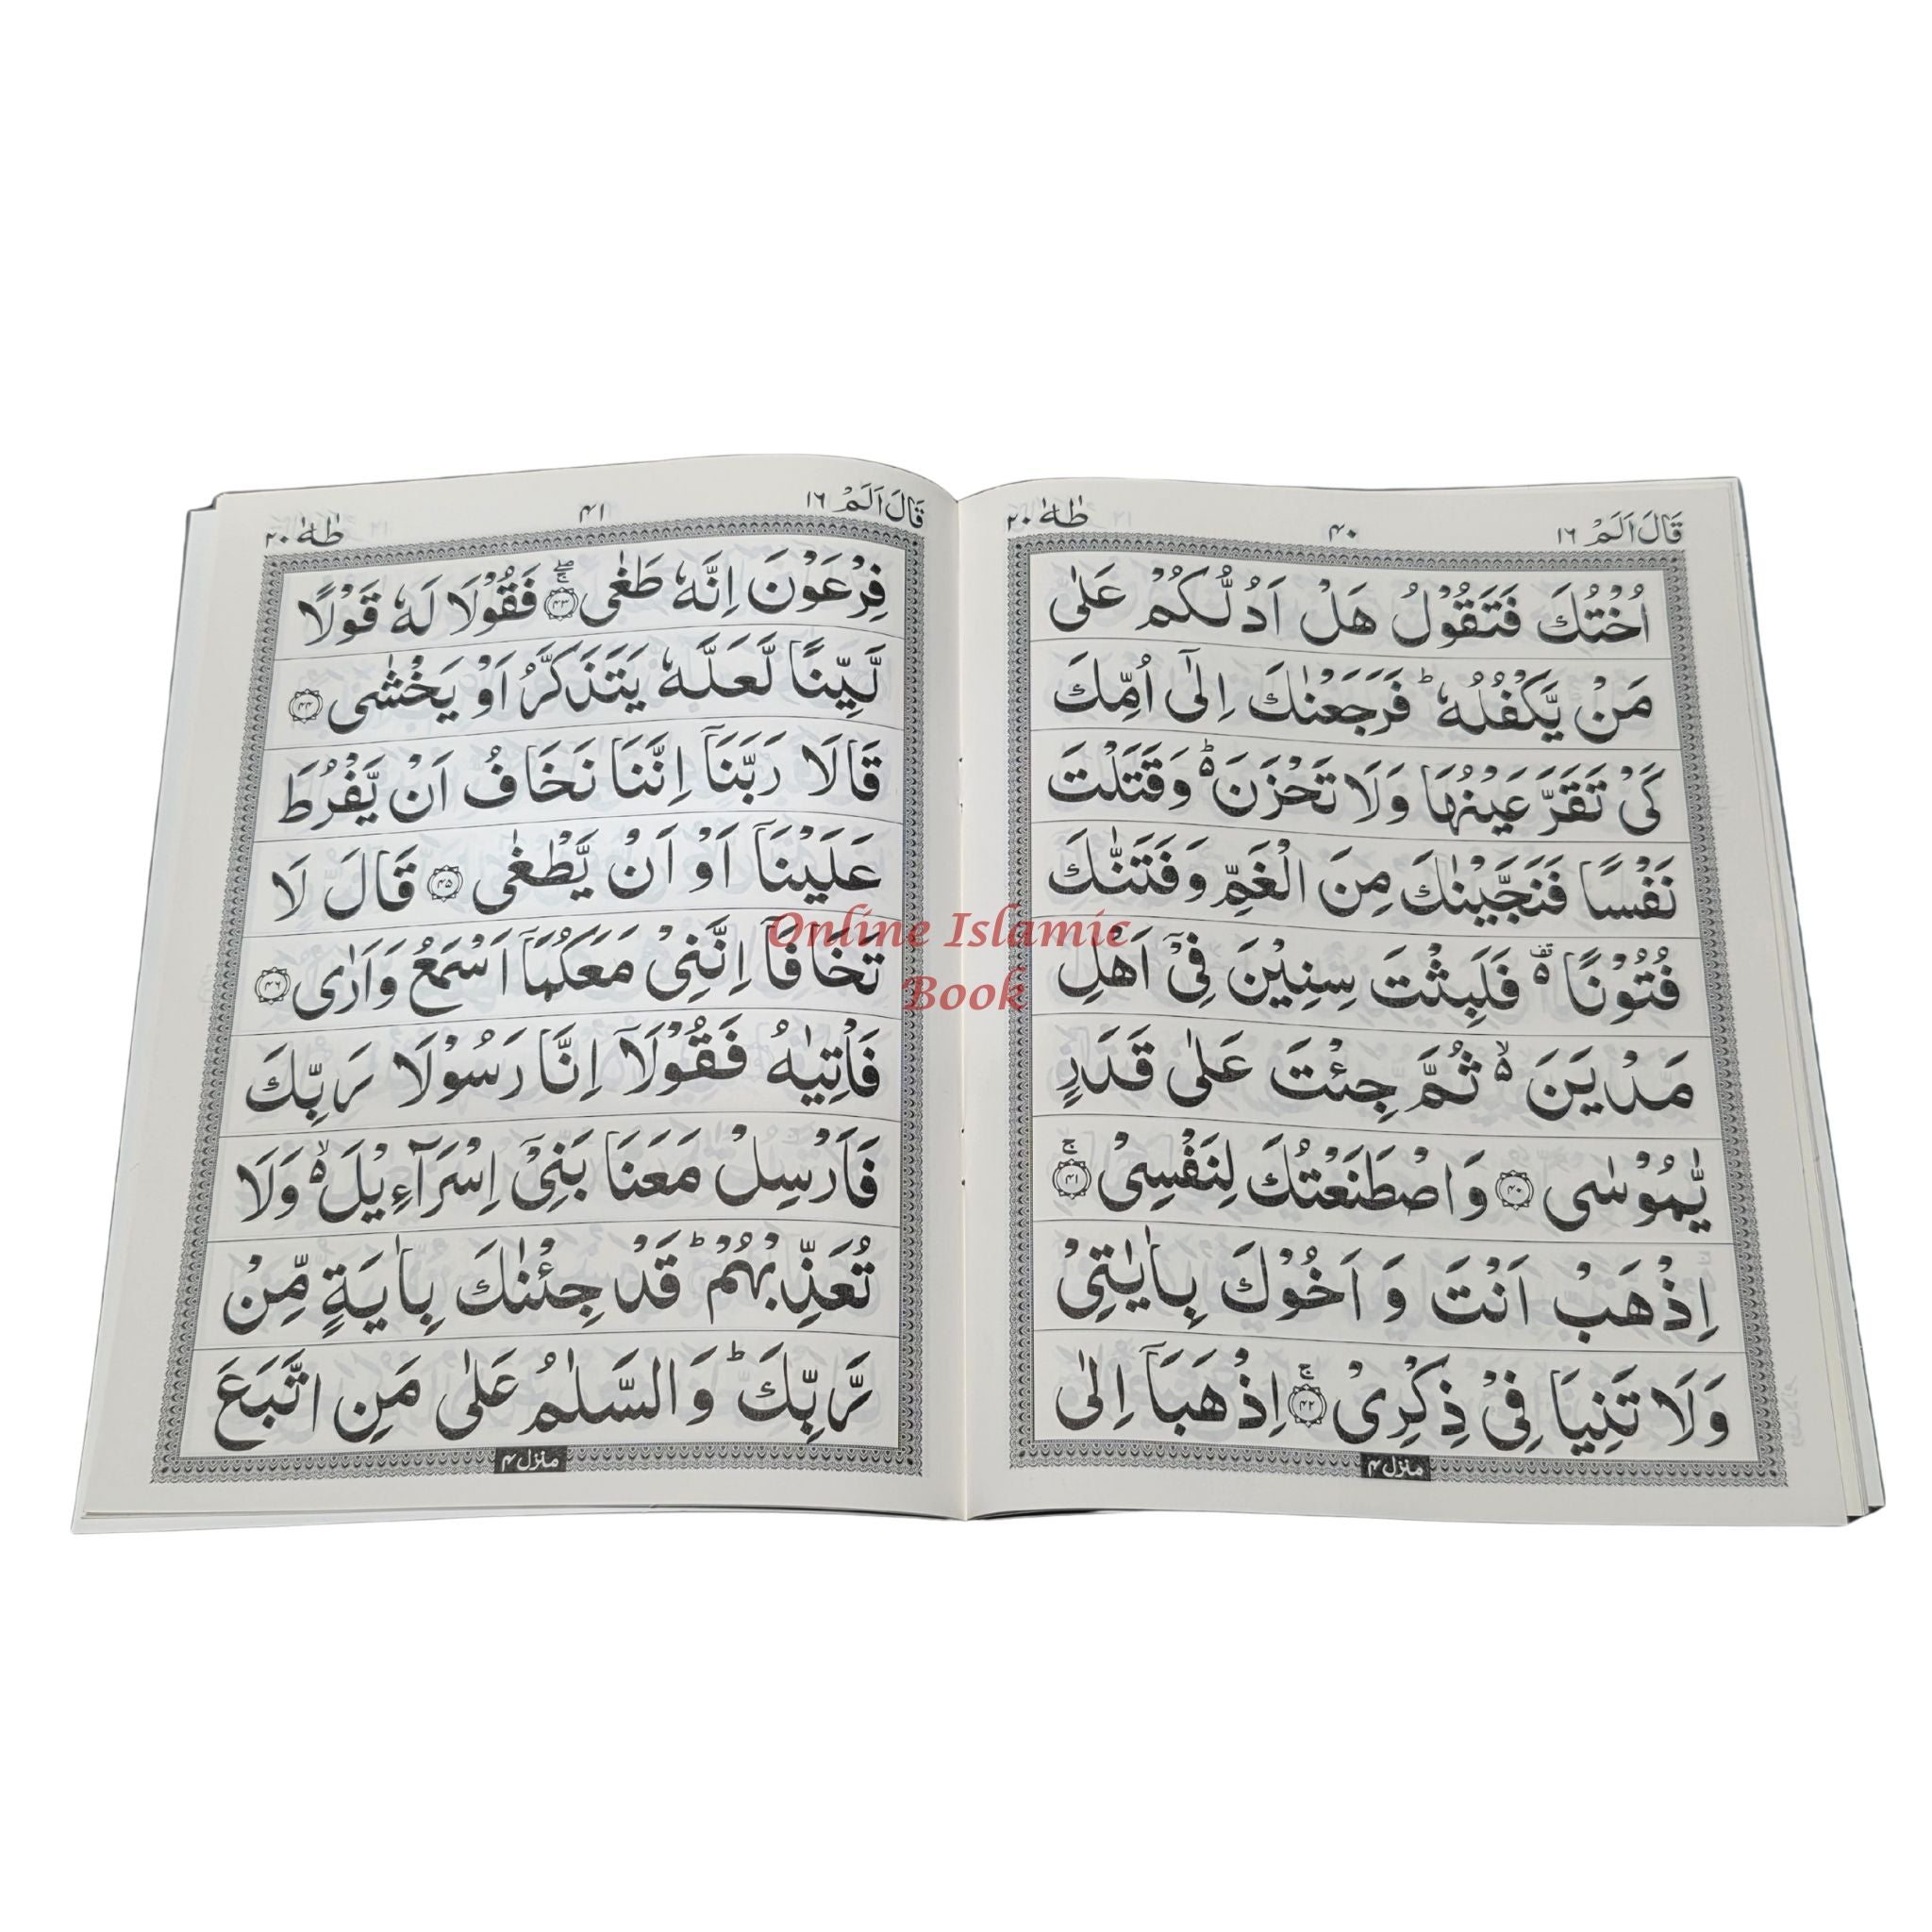 قَالَ اَلَمْ ١٦
۴۰
طٰهٰ ٢٠
اُخْتُكَ فَتَقُوْلُ هَلْ اَدُلُّكُمْ عَلٰى
مَنْ يَّكْفُلُهٗ ؕ فَرَجَعْنٰكَ اِلٰۤى اُمِّكَ
كَىْ تَقَرَّ عَيْنُهَا وَلَا تَحْزَنَ ؕ۬ وَقَتَلْتَ
نَفْسًا فَنَجَّيْنٰكَ مِنَ الْغَمِّ وَفَتَنّٰكَ
فُتُوْنًا ۬ فَلَبِثْتَ سِنِيْنَ فِىْۤ اَهْلِ
مَدْيَنَ ۙ۬ ثُمَّ جِئْتَ عَلٰى قَدَرٍ
يّٰمُوْسٰى ۴۰ وَاصْطَنَعْتُكَ لِنَفْسِىْ ۚ ۴۱
اِذْهَبْ اَنْتَ وَ اَخُوْكَ بِاٰيٰتِىْ
وَلَا تَنِيَا فِىْ ذِكْرِىْ ۚ ۴۲ اِذْهَبَاۤ اِلٰى
منزل ۴
قَالَ اَلَمْ ١٦
۴۱
طٰهٰ ٢٠
فِرْعَوْنَ اِنَّهٗ طَغٰى ۚۖ ۴۳ فَقُوْلَا لَهٗ قَوْلًا
لَّيِّنًا لَّعَلَّهٗ يَتَذَكَّرُ اَوْ يَخْشٰى ۴۴
قَالَا رَبَّنَاۤ اِنَّنَا نَخَافُ اَنْ يَّفْرُطَ
عَلَيْنَاۤ اَوْ اَنْ يَّطْغٰى ۴۵ قَالَ لَا
تَخَافَاۤ اِنَّنِىْ مَعَكُمَاۤ اَسْمَعُ وَاَرٰى ۴۶
فَاْتِيٰهُ فَقُوْلَاۤ اِنَّا رَسُوْلَا رَبِّكَ
فَاَرْسِلْ مَعَنَا بَنِىْۤ اِسْرَآءِيْلَ ۙ۬ وَلَا
تُعَذِّبْهُمْ ؕ قَدْ جِئْنٰكَ بِاٰيَةٍ مِّنْ
رَّبِّكَ ؕ وَالسَّلٰمُ عَلٰى مَنِ اتَّبَعَ
منزل ۴
Online Islamic
Book